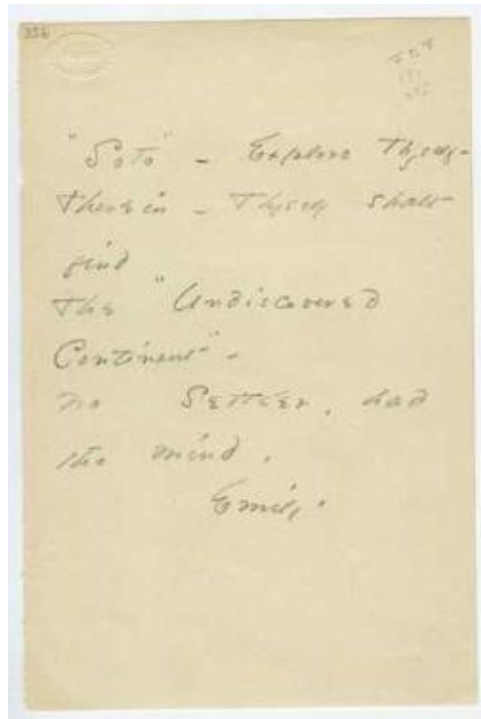 336
"Soto" - Explore Thyself -
Therein - Thyself shalt
find
The "Undiscovered
Continent" -
No Settler, had
the mind.
Emily.